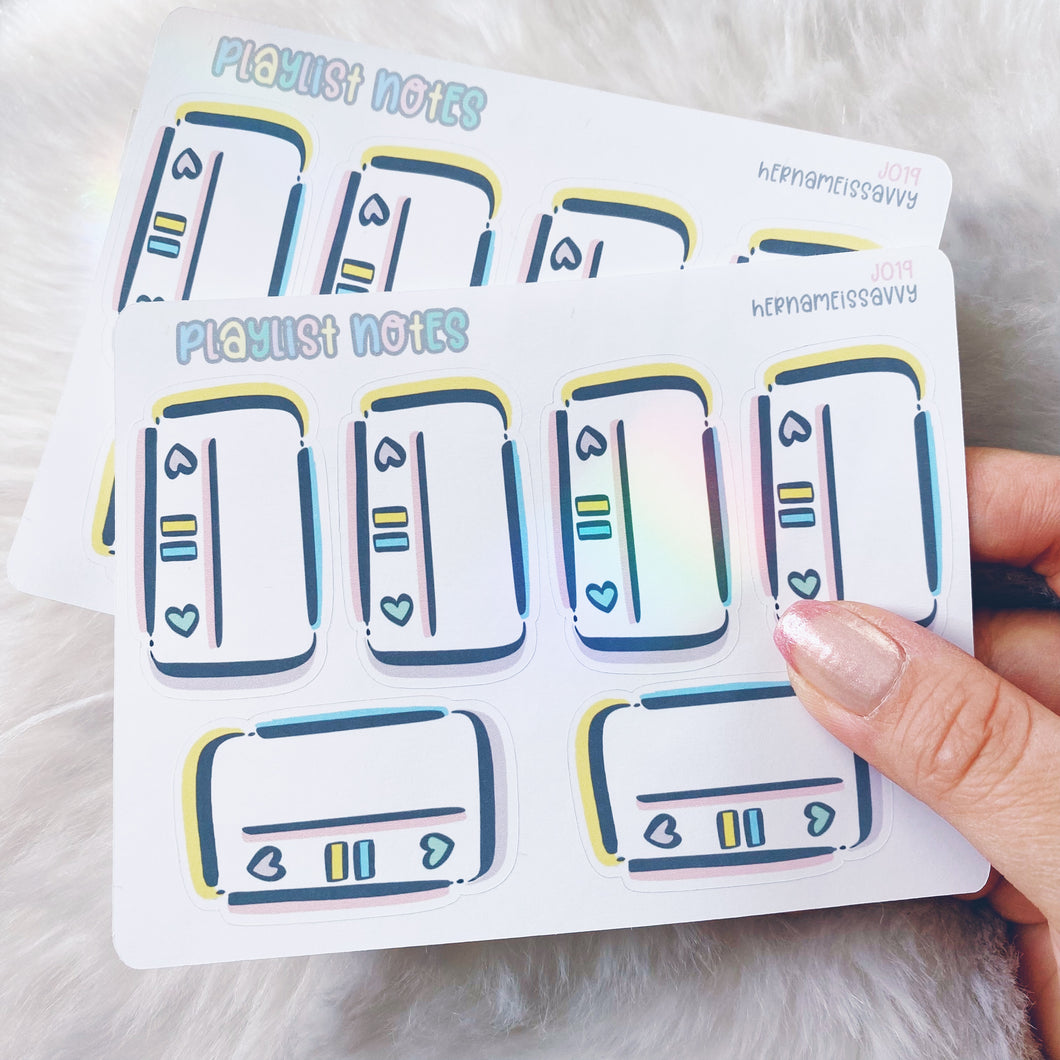 PLAYLIST NOTES
J019
HERNAMEISSAVVY
PLAYLIST NOTES
J019
HERNAMEISSAVVY